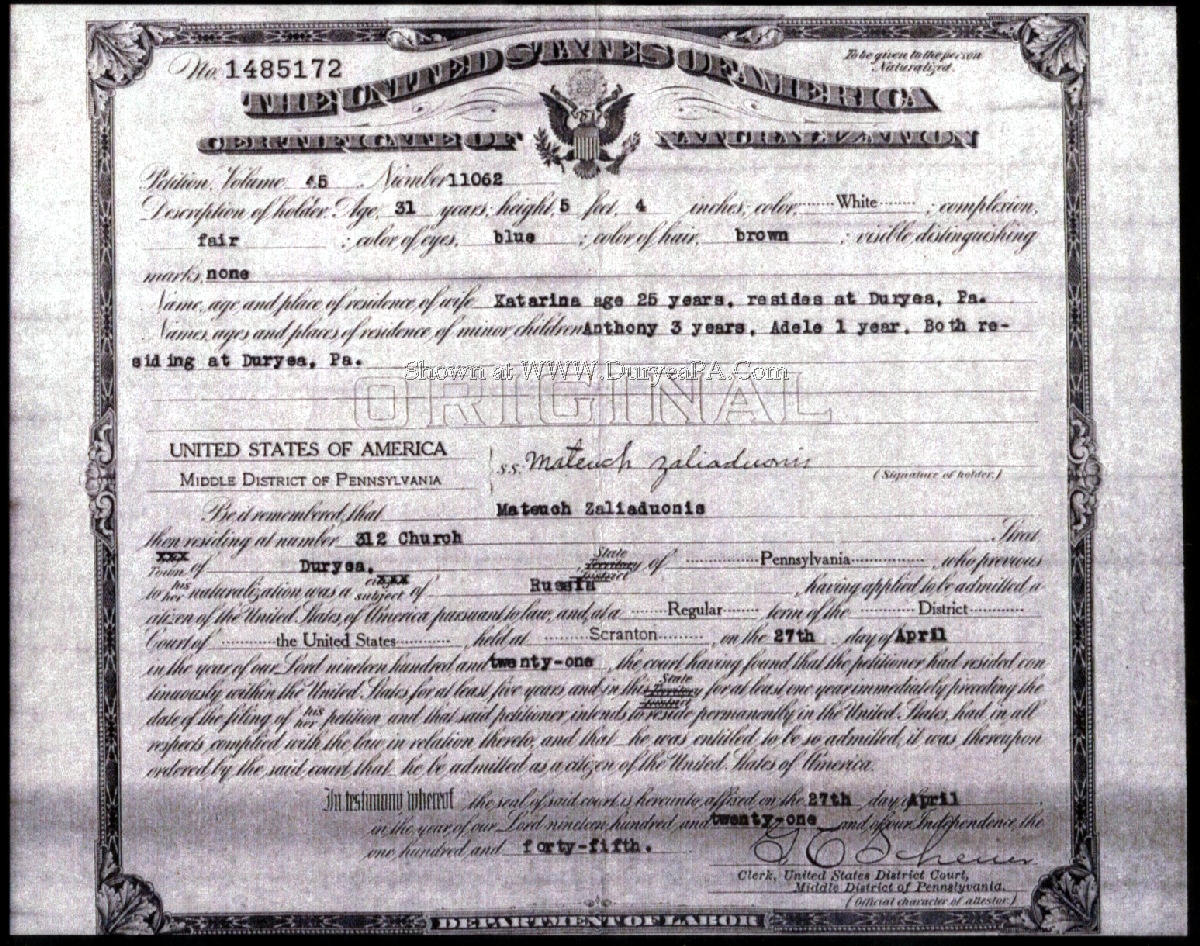 No. 1485172
To be given to the person
Naturalized.
THE UNITED STATES OF AMERICA
CERTIFICATE OF NATURALIZATION
Petition, Volume 45 Number 11062
Description of holder: Age, 31 years; height, 5 feet, 4 inches; color, White ; complexion,
fair ; color of eyes, blue ; color of hair, brown ; visible distinguishing
marks, none
Name, age and place of residence of wife Katarina age 25 years, resides at Duryea, Pa.
Names, ages and places of residence of minor children Anthony 3 years, Adele 1 year. Both re-
siding at Duryea, Pa.
Shown at WWW.DuryeaPA.Com
ORIGINAL
UNITED STATES OF AMERICA
MIDDLE DISTRICT OF PENNSYLVANIA
s.s. Mateuch Zaliaduonis
(Signature of holder.)
Be it remembered, that Mateuch Zaliaduonis
then residing at number 312 Church Street
xxx
Town of Duryea. State Territory District of Pennsylvania , who previous
to his her naturalization was a citizen xxx subject of Russia , having applied to be admitted a
citizen of the United States of America pursuant to law, and at a Regular term of the District
Court of the United States held at Scranton on the 27th day of April
in the year of our Lord nineteen hundred and twenty-one , the court having found that the petitioner had resided con
tinuously within the United States for at least five years and in this State Territory District for at least one year immediately preceding the
date of the filing of his her petition and that said petitioner intends to reside permanently in the United States, had in all
respects complied with the law in relation thereto, and that he was entitled to be so admitted, it was thereupon
ordered by the said court that he be admitted as a citizen of the United States of America.
In testimony whereof the seal of said court is hereunto affixed on the 27th day of April
in the year of our Lord nineteen hundred and twenty-one and of our Independence the
one hundred and forty-fifth.
Clerk, United States District Court,
Middle District of Pennsylvania.
(Official character of attestor.)
DEPARTMENT OF LABOR